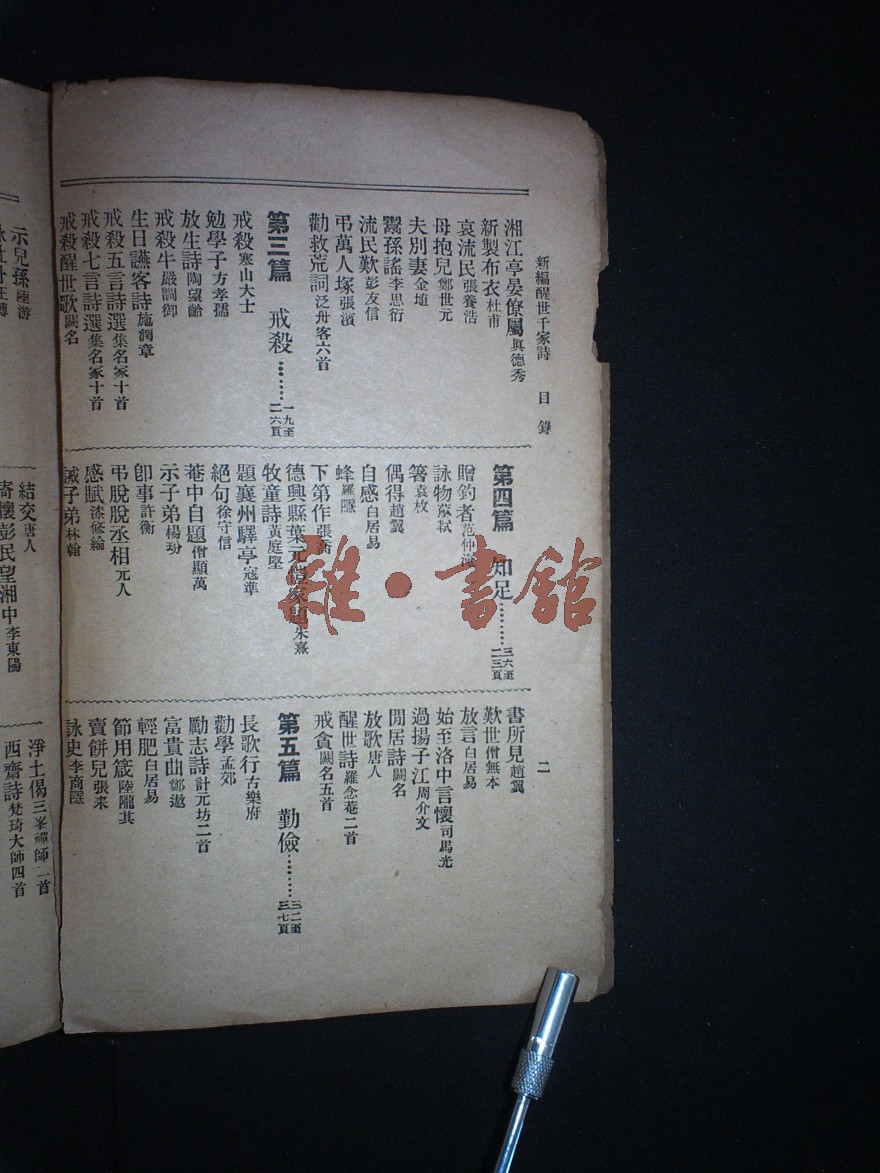 新編醒世千家詩 目錄
二
湘江亭晏僚屬真德秀
新製布衣杜甫
哀流民張養浩
母抱兒鄭世元
夫別妻金埴
鬻孫謠李思衍
流民歎彭友信
弔萬人塚張濱
勸救荒詞泛舟客六首
第三篇 戒殺………一九至二六頁
戒殺寒山大士
勉學子方孝孺
放生詩陶望齡
戒殺牛嚴調御
生日讌客詩施潤章
戒殺五言詩選集名家十首
戒殺七言詩選集名家十首
戒殺醒世歌闕名
第四篇 知足………
贈釣者范仲淹
詠物蘇軾
箸袁枚
偶得趙翼
自感白居易
蜂羅隱
下第作張喬
德興縣葉元愷家題朱熹
牧童詩黃庭堅
題襄州驛亭寇準
絕句徐守信
菴中自題僧顯萬
示子弟楊玢
卽事許衡
弔脫脫丞相元人
感賦漆修綸
誡子弟林翰
書所見趙翼
歎世僧無本
放言白居易
始至洛中言懷司馬光
過揚子江周介文
閒居詩闕名
放歌唐人
醒世詩羅念菴二首
戒貪闕名五首
第五篇 勤儉………三二至三七頁
長歌行古樂府
勸學孟郊
勵志詩計元坊二首
富貴曲鄭遨
輕肥白居易
節用箴陸隴其
賣餅兒張耒
詠史李商隱
示兒孫陸游
結交唐人
寄懷彭民望湘中李東陽
淨土偈三峯禪師二首
西齋詩梵琦大師四首
雜·書館